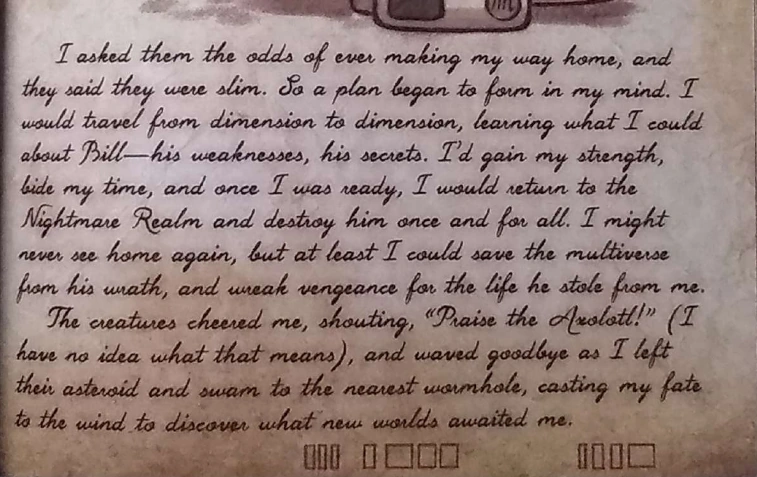 I asked them the odds of ever making my way home, and
they said they were slim. So a plan began to form in my mind. I
would travel from dimension to dimension, learning what I could
about Bill—his weaknesses, his secrets. I'd gain my strength,
bide my time, and once I was ready, I would return to the
Nightmare Realm and destroy him once and for all. I might
never see home again, but at least I could save the multiverse
from his wrath, and wreak vengeance for the life he stole from me.
The creatures cheered me, shouting, "Praise the Axolotl!" (I
have no idea what that means), and waved goodbye as I left
their asteroid and swam to the nearest wormhole, casting my fate
to the wind to discover what new worlds awaited me.